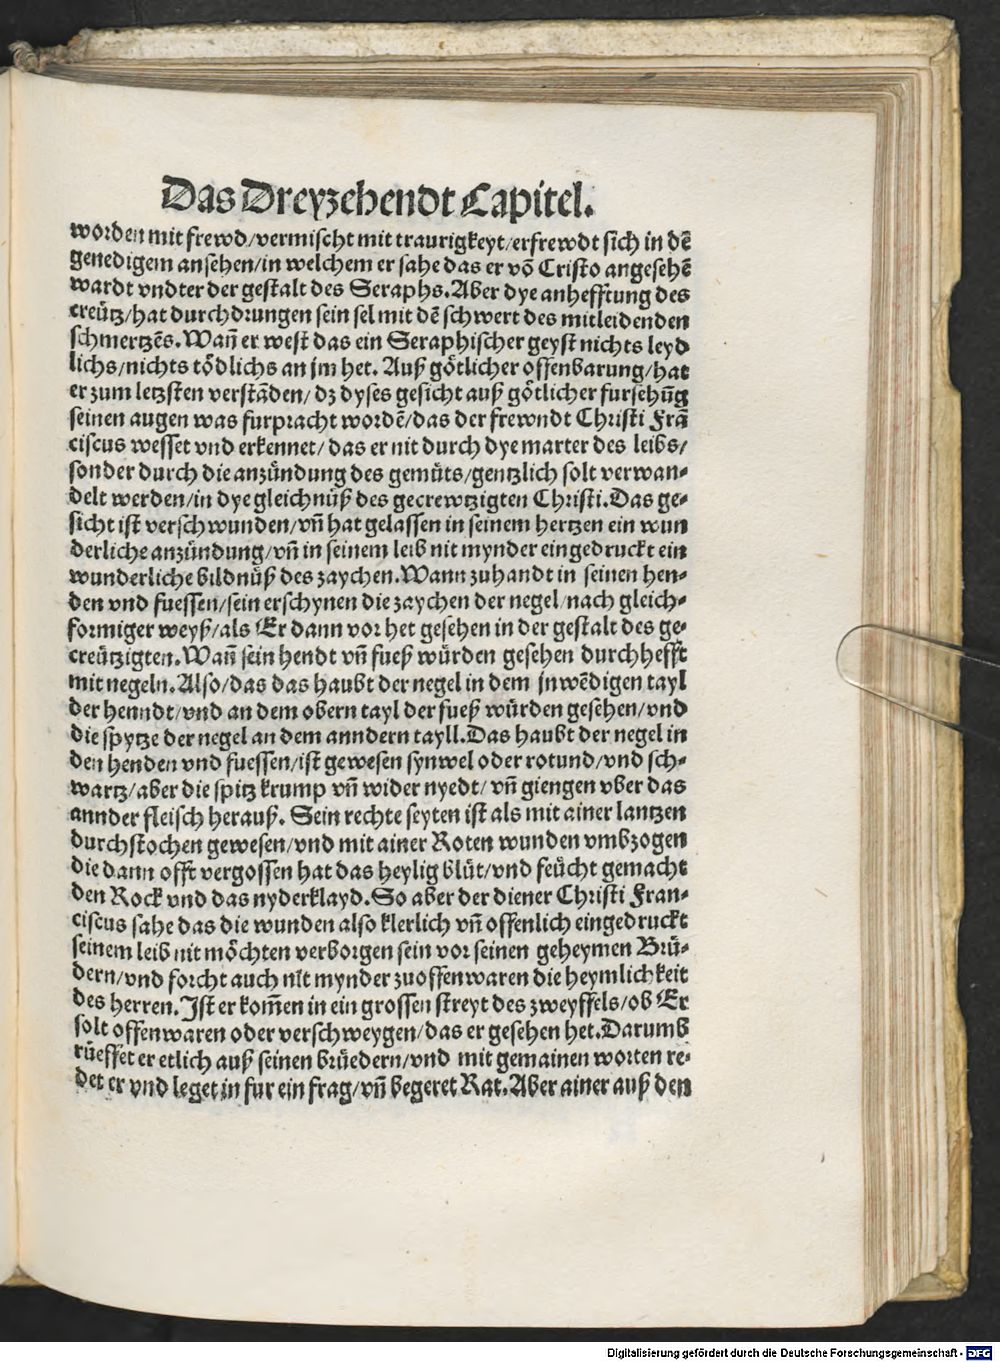 Das Dreyzehendt Capitel.
worden mit frewd/vermischt mit traurigkeyt/erfrewdt sich in dē
genedigem ansehen/in welchem er sahe das er võ Cristo angesehē
wardt vndter der gestalt des Seraphs. Aber dye anhefftung des
creütz/hat durchdrungen sein sel mit dē schwert des mitleidenden
schmertzēs. Wañ er west das ein Seraphischer geyst nichts leyd
lichs/nichts tödlichs an jm het. Auß götlicher offenbarung/hat
er zum letzsten verstāden/ dz dyses gesicht auß götlicher fursehūg
seinen augen was furpracht wordē/das der frewndt Christi Frā
ciscus wesset vnd erkennet/ das er nit durch dye marter des leibs/
sonder durch die anzündung des gemüts/gentzlich solt verwan-
delt werden/in dye gleichnüß des gecrewtzigten Christi. Das ge-
sicht ist verschwunden/vñ hat gelassen in seinem hertzen ein wun
derliche anzündung/vñ in seinem leib nit mynder eingedruckt ein
wunderliche bildnüß des zaychen. Wann zuhandt in seinen hen-
den vnd fuessen/sein erschynen die zaychen der negel/nach gleich-
formiger weyß/als Er dann vor het gesehen in der gestalt des ge-
creützigten. Wañ sein hendt vñ fueß würden gesehen durchhefft
mit negeln. Also/das das haubt der negel in dem jnwēdigen tayl
der henndt/vnd an dem obern tayl der fueß würden gesehen/vnd
die spytze der negel an dem anndern tayll. Das haubt der negel in
den henden vnd fuessen/ist gewesen synwel oder rotund/vnd sch-
wartz/aber die spitz krump vñ wider nyedt/ vñ giengen vber das
annder fleisch herauß. Sein rechte seyten ist als mit ainer lantzen
durchstochen gewesen/vnd mit ainer Roten wunden vmbzogen
die dann offt vergossen hat das heylig blüt/vnd feücht gemacht
den Rock vnd das nyderklayd. So aber der diener Christi Fran-
ciscus sahe das die wunden also klerlich vñ offenlich eingedruckt
seinem leib nit möchten verborgen sein vor seinen geheymen Brü-
dern/vnd forcht auch nit mynder zuoffenwaren die heymlichkeit
des herren. Ist er kom̄en in ein grossen streyt des zweyffels/ob Er
solt offenwaren oder verschweygen/das er gesehen het. Darumb
rüeffet er etlich auß seinen brüedern/vnd mit gemainen worten re-
det er vnd leget in fur ein frag/vñ begeret Rat. Aber ainer auß den
Digitalisierung gefördert durch die Deutsche Forschungsgemeinschaft - DFG